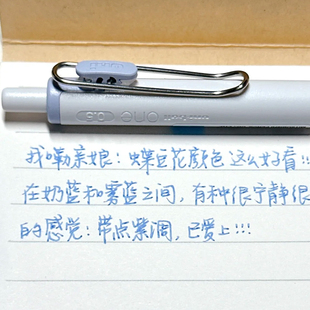 uni-ball one 0.5
我嘞亲娘：蝶豆花颜色这么好看!!
在奶蓝和雾蓝之间，有种很宁静很
的感觉：带点紫调，已爱上!!!